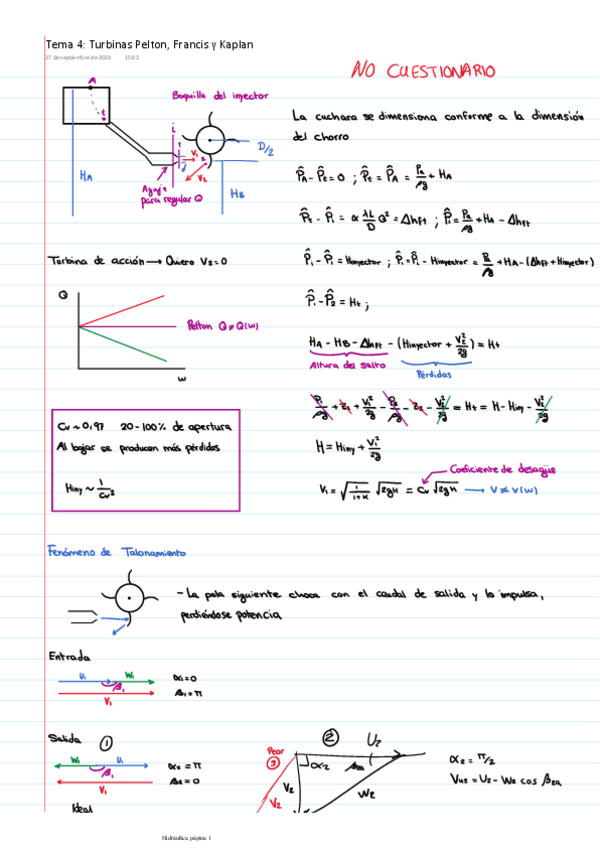 Tema 4: Turbinas Pelton, Francis y Kaplan
27 de septiembre de 2023 15:02
NO CUESTIONARIO
A
t
Boquilla del inyector
HA
i
1
V1
2
V2
D/2
HB
Aguja
para regular Q
La cuchara se dimensiona conforme a la dimensión
del chorro
P̂A - P̂t = 0 ; P̂t = P̂A = Pa/ρg + HA
P̂t - P̂i = α λL/D Q² = Δhft ; P̂i = Pa/ρg + HA - Δhft
Turbina de acción → Quiero V2 = 0
P̂i - P̂1 = Hinyector ; P̂1 = P̂i - Hinyector = Pa/ρg + HA - (Δhft + Hinyector)
Q
Pelton Q ≠ Q(w)
w
P̂1 - P̂2 = Ht ;
HA - HB - Δhft - (Hinyector + V2²/2g) = Ht
Altura del salto
Pérdidas
P1/ρg + z1 + V1²/2g - P2/ρg - z2 - V2²/2g = Ht = H - Hiny - V2²/2g
Cv ~ 0,97 20-100% de apertura
Al bajar se producen más pérdidas
Hiny ~ 1/Cv²
H = Hiny + V1²/2g
Coeficiente de desagüe
V1 = √(1/1+K) √2gH = Cv √2gH → V ≠ V(w)
Fenómeno de Talonamiento
- La pala siguiente choca con el caudal de salida y lo impulsa,
perdiéndose potencia
Entrada
U1 W1
β1
V1
α1 = 0
β1 = π
Salida ①
W1 U1
β1
V1
α2 = π
β2 = 0
Ideal
②
U2
Peor
③
α2
V2
W2
V2
α2 = π/2
Vu2 = U2 - W2 cos β2a
Hidráulica página 1